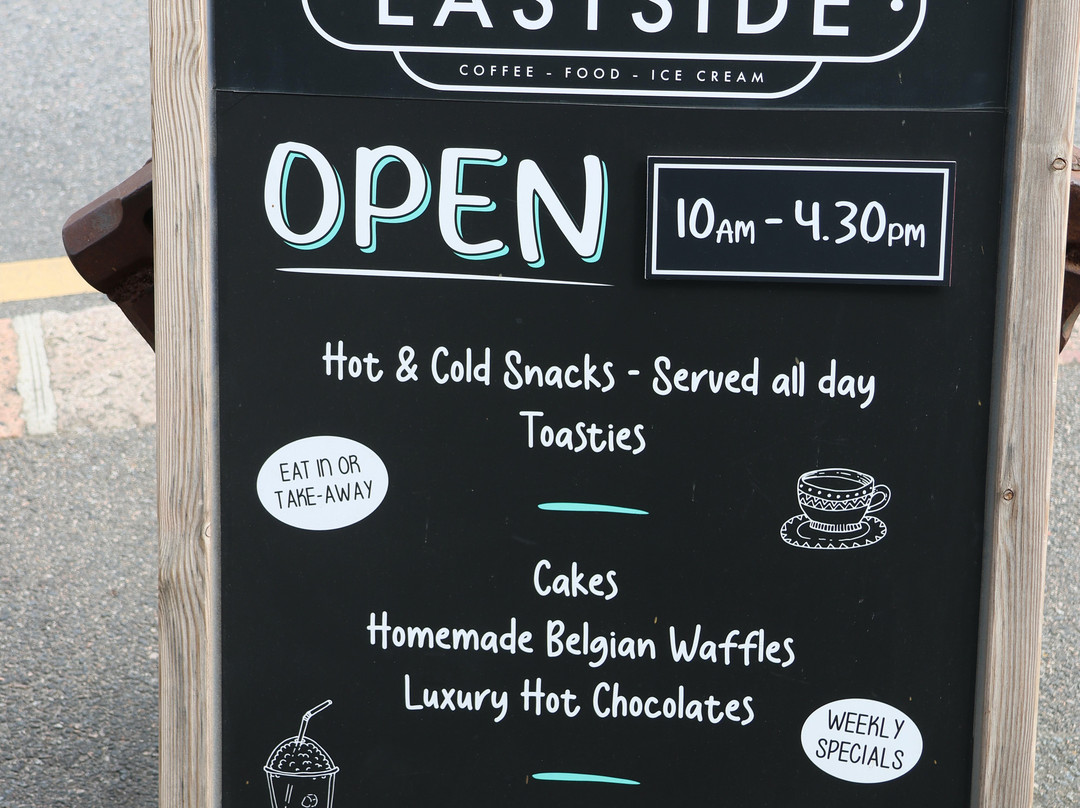 EASTSIDE
COFFEE - FOOD - ICE CREAM
OPEN
10AM - 4.30PM
Hot & Cold Snacks - Served all day
Toasties
EAT IN OR
TAKE-AWAY
Cakes
Homemade Belgian Waffles
Luxury Hot Chocolates
WEEKLY
SPECIALS